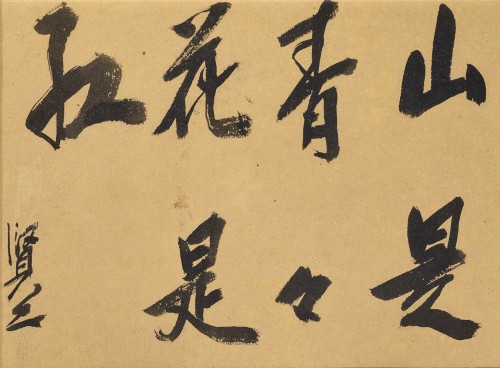 山是
青々
花是
紅
賢三